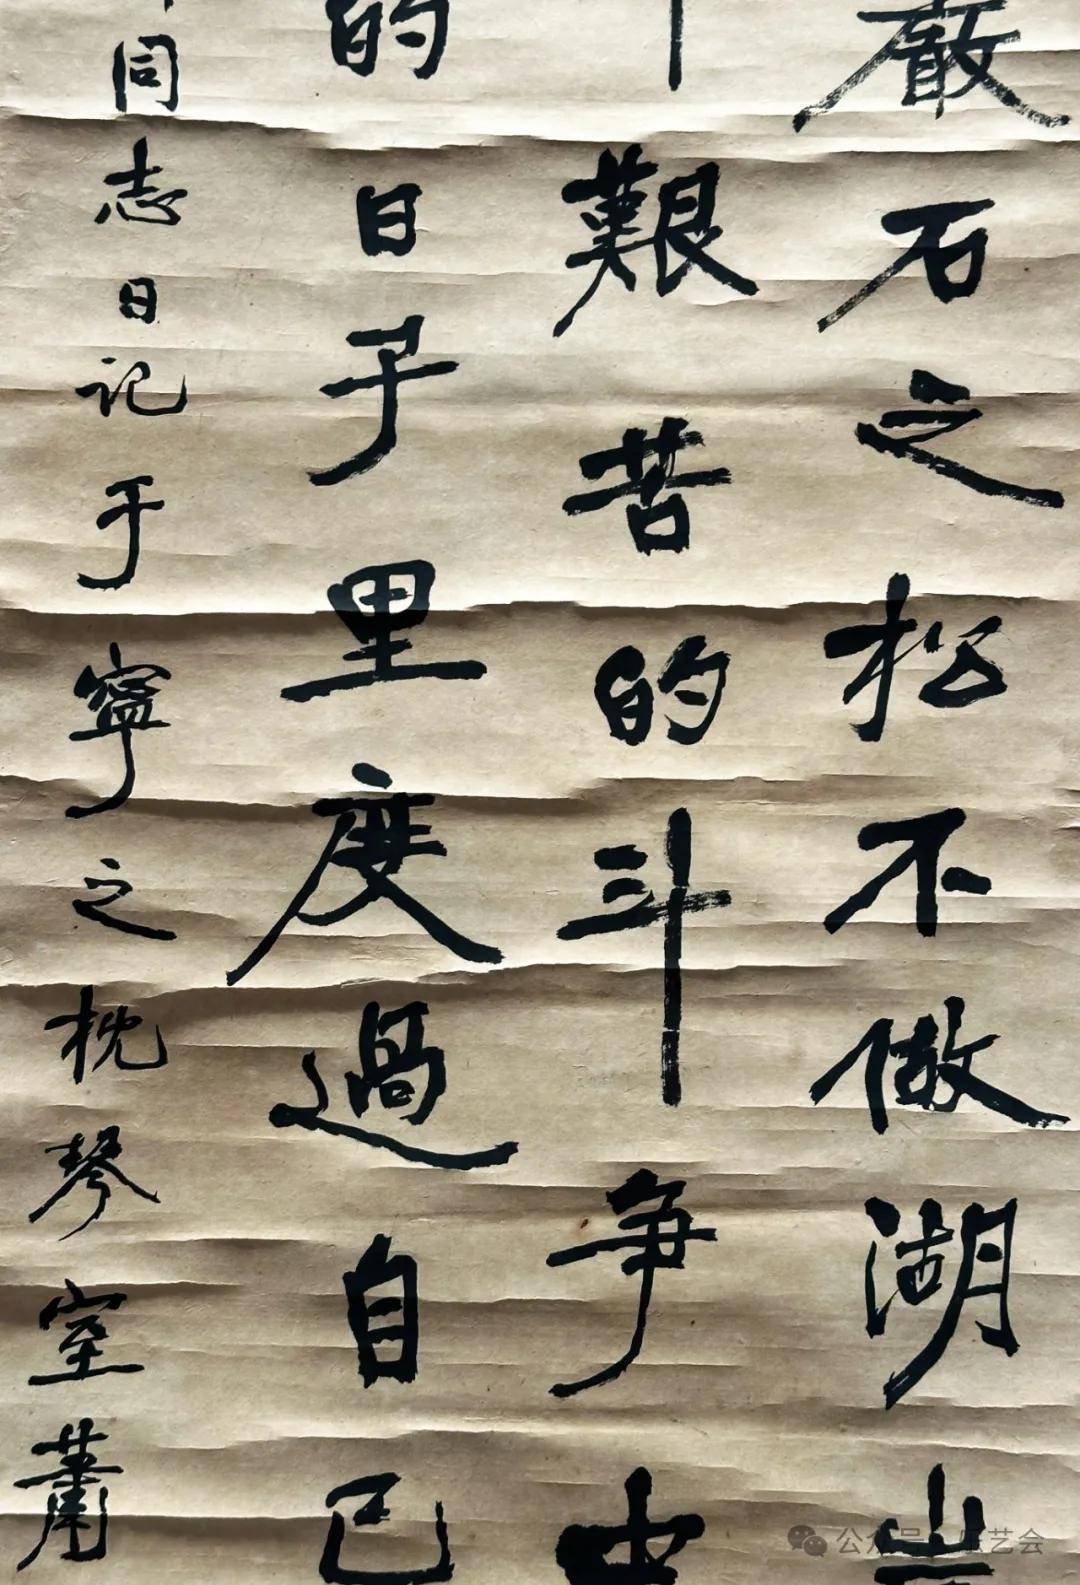 嚴石之松不做湖
艱苦的斗争中
的日子里度過自己
同志日记于寧之枕琴室蕭
公众号 乐艺会